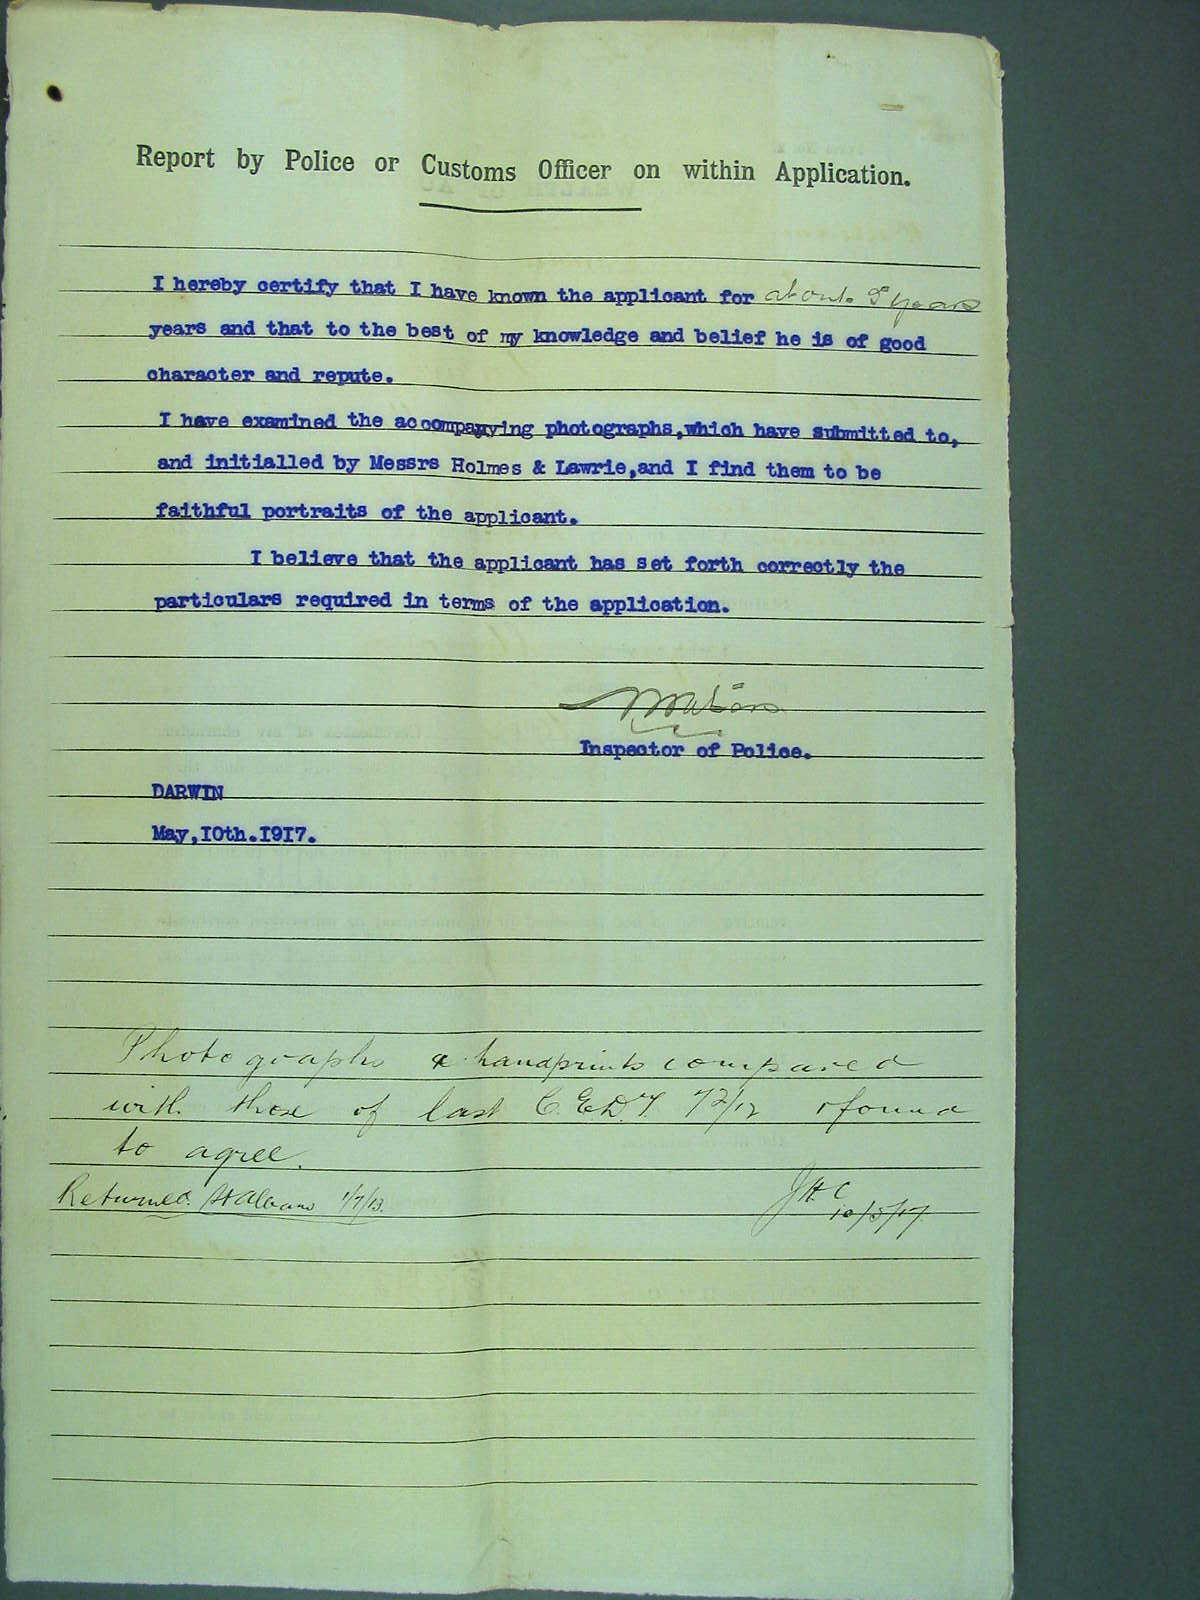 Report by Police or Customs Officer on within Application.
I hereby certify that I have known the applicant for about 5 years
years and that to the best of my knowledge and belief he is of good
character and repute.
I have examined the accompanying photographs,which have submitted to,
and initialled by Messrs Holmes & Lawrie,and I find them to be
faithful portraits of the applicant.
I believe that the applicant has set forth correctly the
particulars required in terms of the application.
Inspector of Police.
DARWIN
May,10th.1917.
Photographs & handprints compared
with those of last C.E.D.T. 72/12 & found
to agree.
Returned St Albans 1/7/13.
JHC
10/5/17.